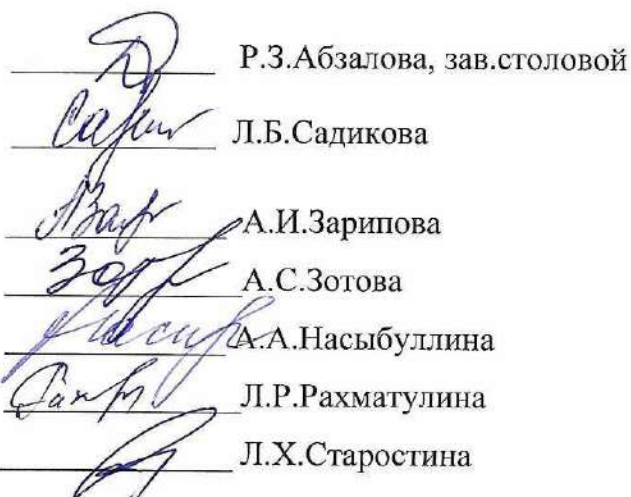 Р.З.Абзалова, зав.столовой
Л.Б.Садикова
А.И.Зарипова
А.С.Зотова
А.А.Насыбуллина
Л.Р.Рахматулина
Л.Х.Старостина